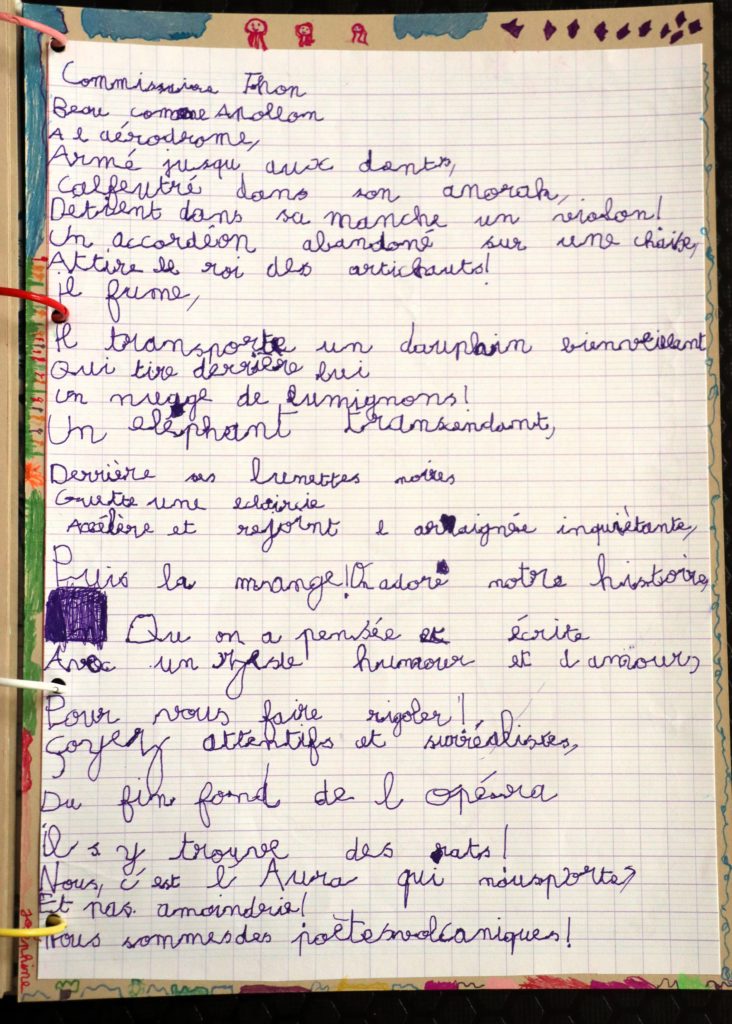 Commissaire Thon
Beau comme Apollon
A l aérodrome,
Armé jusqu aux dants,
Calfeutré dans son anorak,
Detient dans sa manche un violon!
Un accordéon abandoné sur une chaise,
Attire le roi des artichauts!
Il fume,
Il transporte un dauphin bienveillant
Qui tire derrière lui
Un nuage de lumignons!
Un eléphant transendant,
Derrière ses lunettes noires
Guette une eclaircie
Accélère et rejoint l arraignée inquiètante,
Puis la mange! On adore notre histoire,
Qu on a pensée et écrite
Avec un zeste humour et d amour,
Pour vous faire rigoler!
Soyez attentifs et surréalistes,
Du fin fond de l opésra
il s y trouve des rats!
Nous, c'est l'Aura qui nousporte,
Et pas amoindrie!
Nous sommesdes poètesvolcaniques!
Joséphine